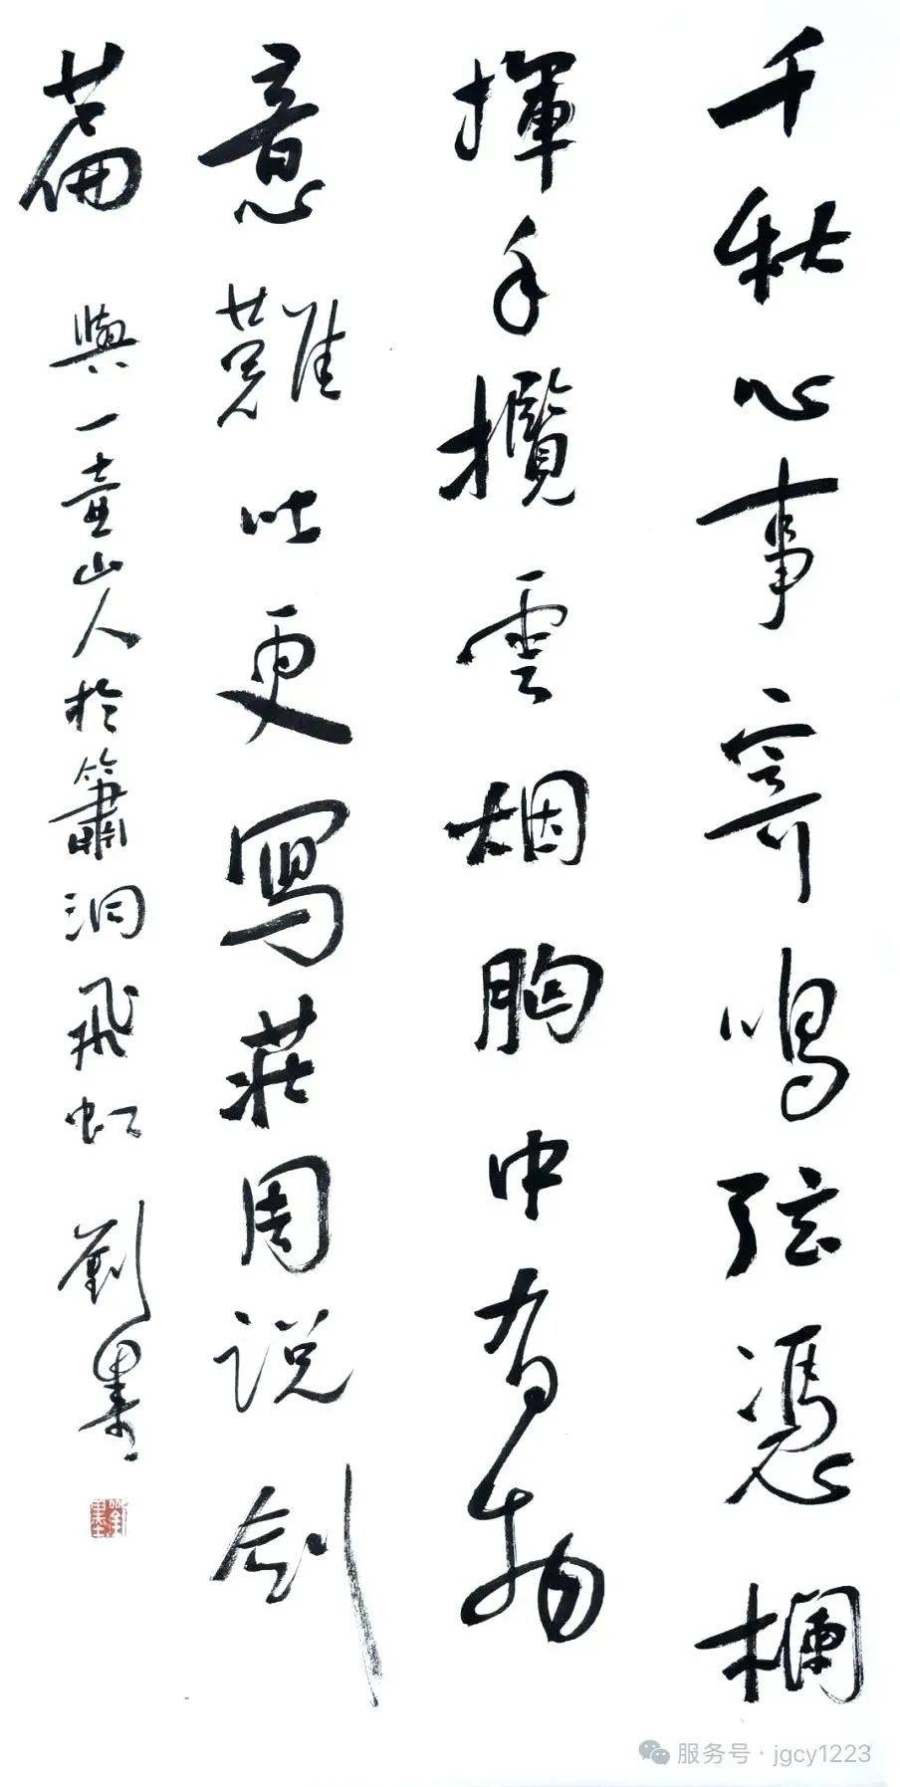 千秋心事寄鳴弦憑欄
揮手攬雲烟胸中有物
意難吐更寫莊周説劍
篇
與一壺山人於簫洞飛虹
劉墨
劉墨
服务号·jgcy1223